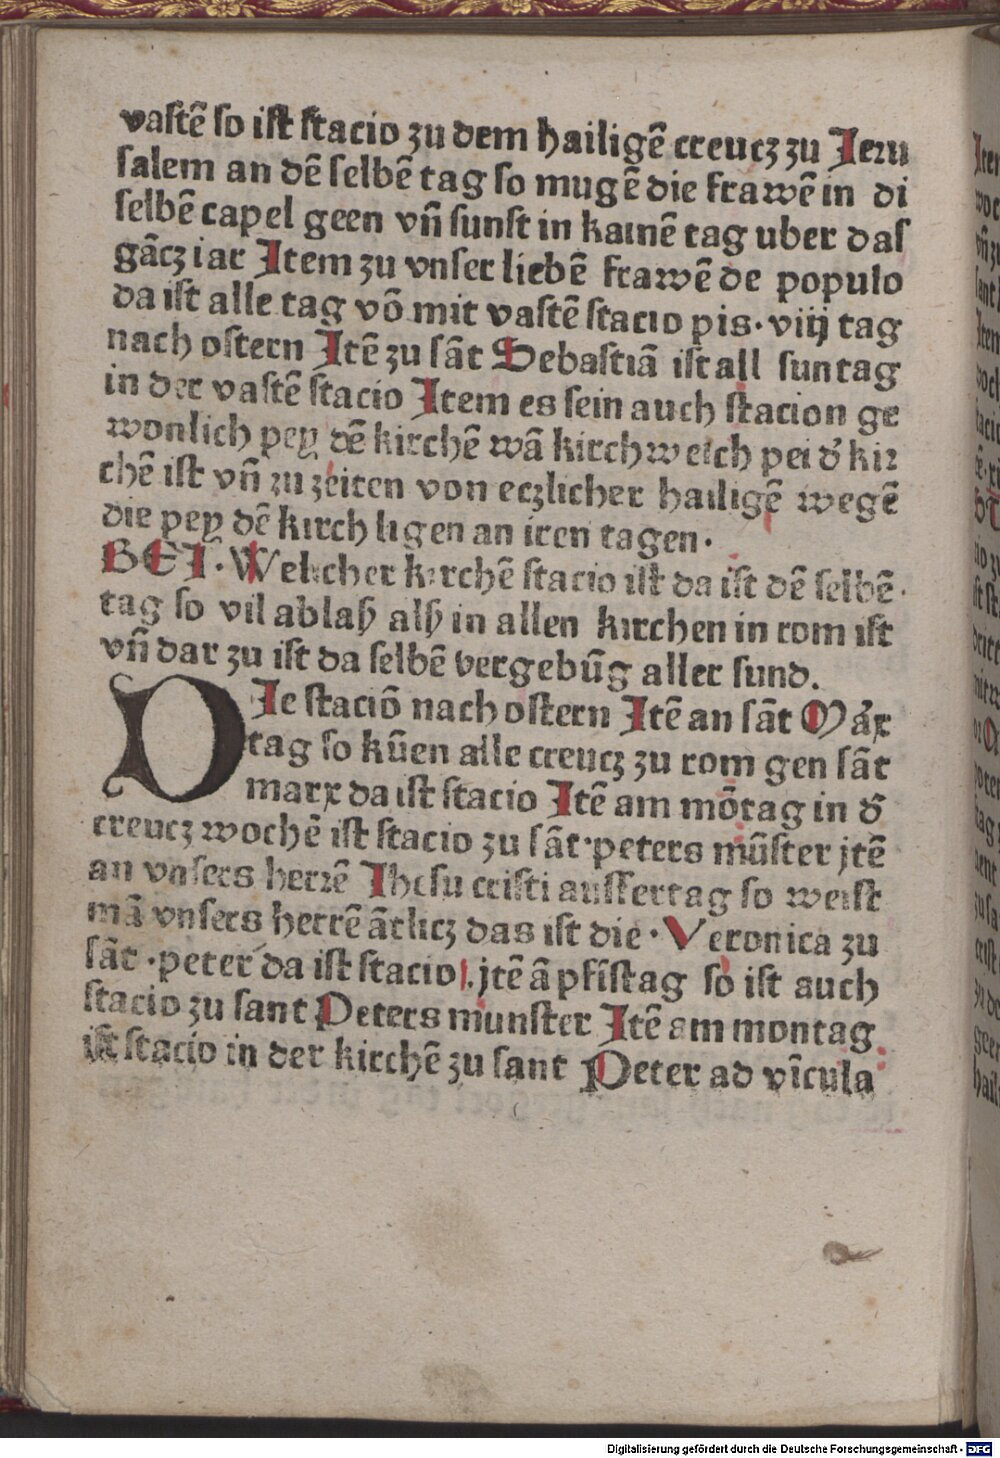 vastē so ist stacio zu dem hailigē creucz zu Jeru
salem an dē selbē tag so mugē die frawē in di
selbē capel geen vn̄ sunst in kainē tag uber das
gācz iar Item zu vnser liebē frawē de populo
da ist alle tag vō mit vastē stacio pis· viij tag
nach ostern Itē zu sāt Sebastiā ist all suntag
in der vastē stacio Item es sein auch stacion ge
wonlich pey dē kirchē wā kirchweich pei d̄ kir
chē ist vn̄ zu zeiten von eczlicher hailigē wegē
die pey dē kirch ligen an iren tagen·
BEI· Welicher kirchē stacio ist da ist dē selbē·
tag so vil ablaß alß in allen kirchen in rom ist
vn̄ dar zu ist da selbē vergebūg aller sund.
DIe staciō nach ostern Itē an sāt Marx
tag so kūen alle creucz zu rom gen sāt
marx da ist stacio Itē am mōtag in d̄
creucz wochē ist stacio zu sāt·peters mūster jtē
an vnsers herrē Ihesu cristi auffertag so weist
mā vnsers herrē ātlicz das ist die· Veronica zu
sāt ·peter da ist stacio. jtē ā pfīstag so ist auch
stacio zu sant Peters munster Itē am montag
ist stacio in der kirchē zu sant Peter ad vīcula
Digitalisierung gefördert durch die Deutsche Forschungsgemeinschaft - DFG